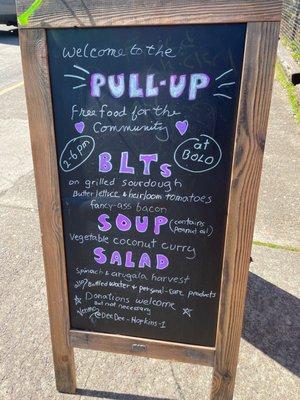 Welcome to the
PULL-UP
Free food for the
Community
2-6pm
at
BOLO
BLTs
on grilled sourdough
Butter lettuce & heirloom tomatoes
fancy-ass bacon
SOUP (contains
Peanut oil)
Vegetable coconut curry
SALAD
Spinach & arugala harvest
Also Bottled water & personal-care products
Donations welcome
But not necessary
Venmo @DeeDee-Hopkins-1